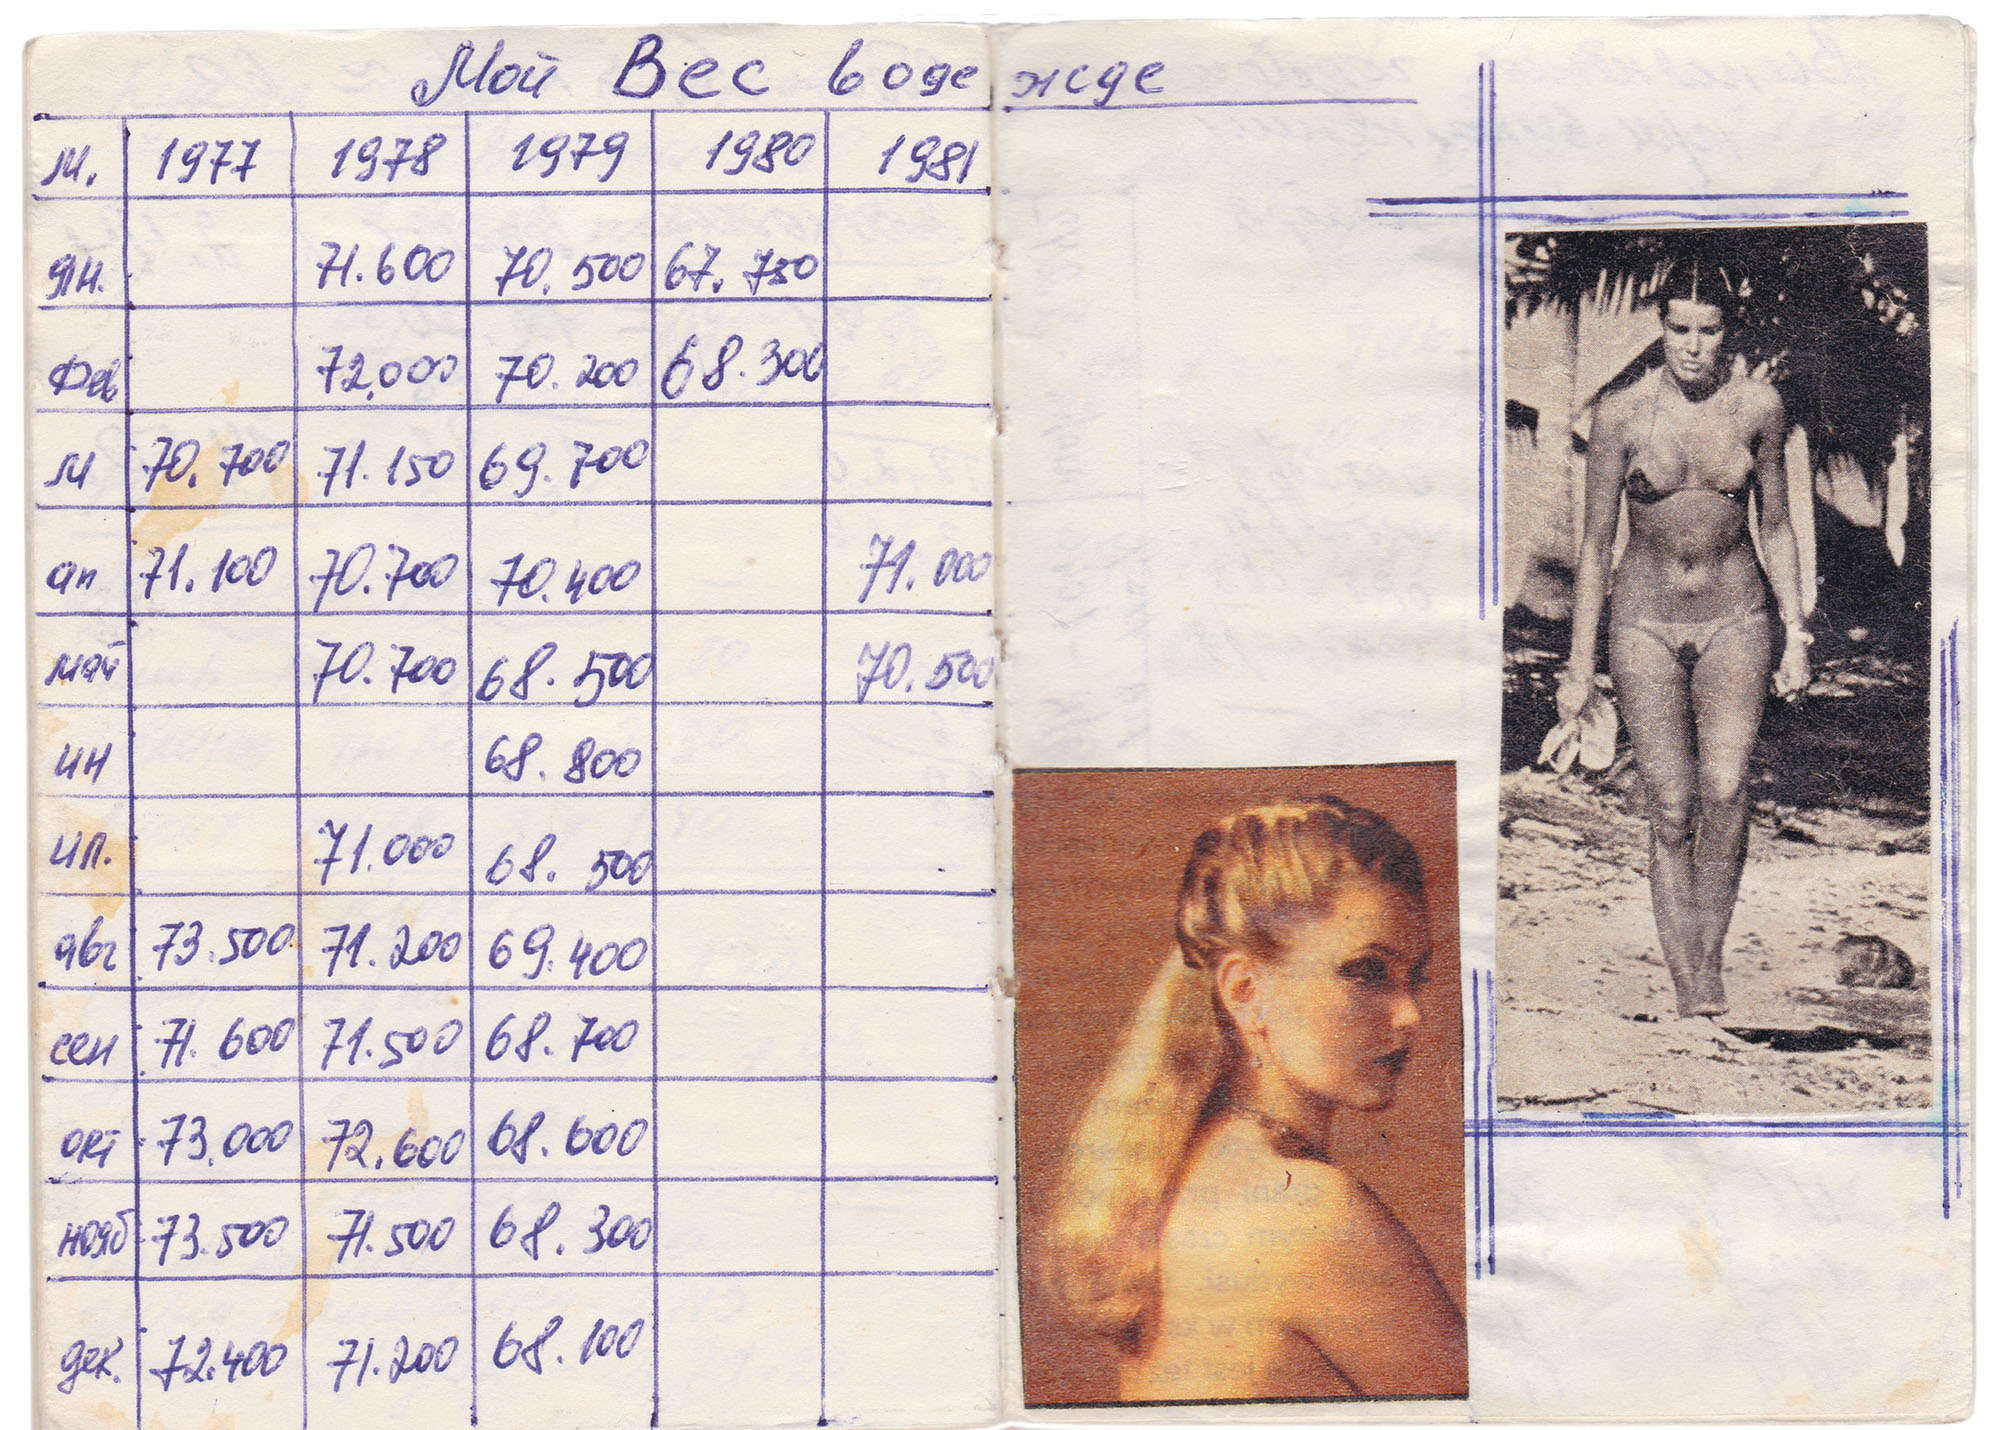 Мой Вес в одежде
м. 1977 1978 1979 1980 1981
ян. 71.600 70.500 67.750
фев 72.000 70.200 68.300
м 70.700 71.150 69.700
ап 71.100 70.700 70.400 71.000
май 70.700 68.500 70.500
ин 68.800
ил. 71.000 68.500
авг 73.500 71.200 69.400
сен 71.600 71.500 68.700
окт 73.000 72.600 68.600
нояб 73.500 71.500 68.300
дек. 72.400 71.200 68.100